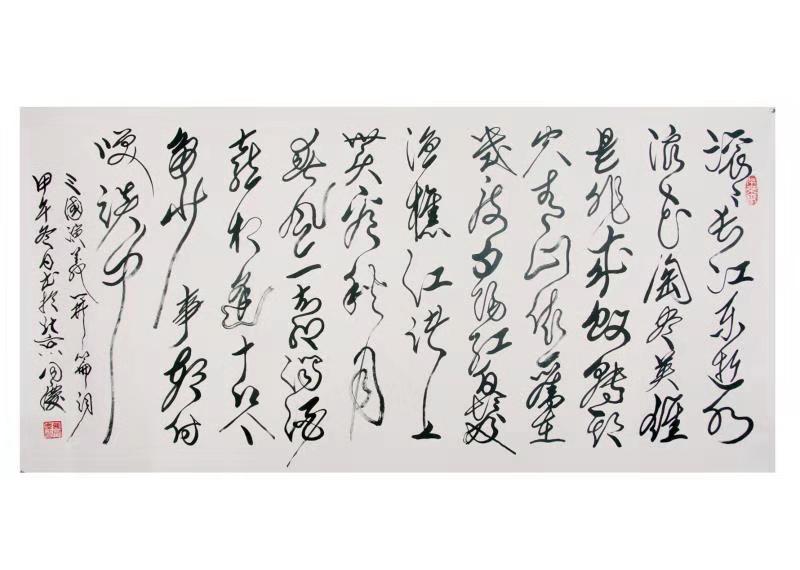 滚〻长江东逝水
浪花淘尽英雄
是非成败轉頭
空青山依舊在
幾度夕阳红白髮
渔樵江渚上
惯看秋月
春风一壶浊酒
喜相逢古今
多少事都付
笑谈中
三國演義开篇词
甲午冬月书於北京